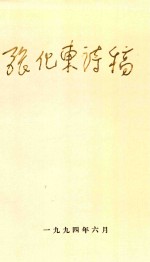 張化東詩稿
一九九四年六月